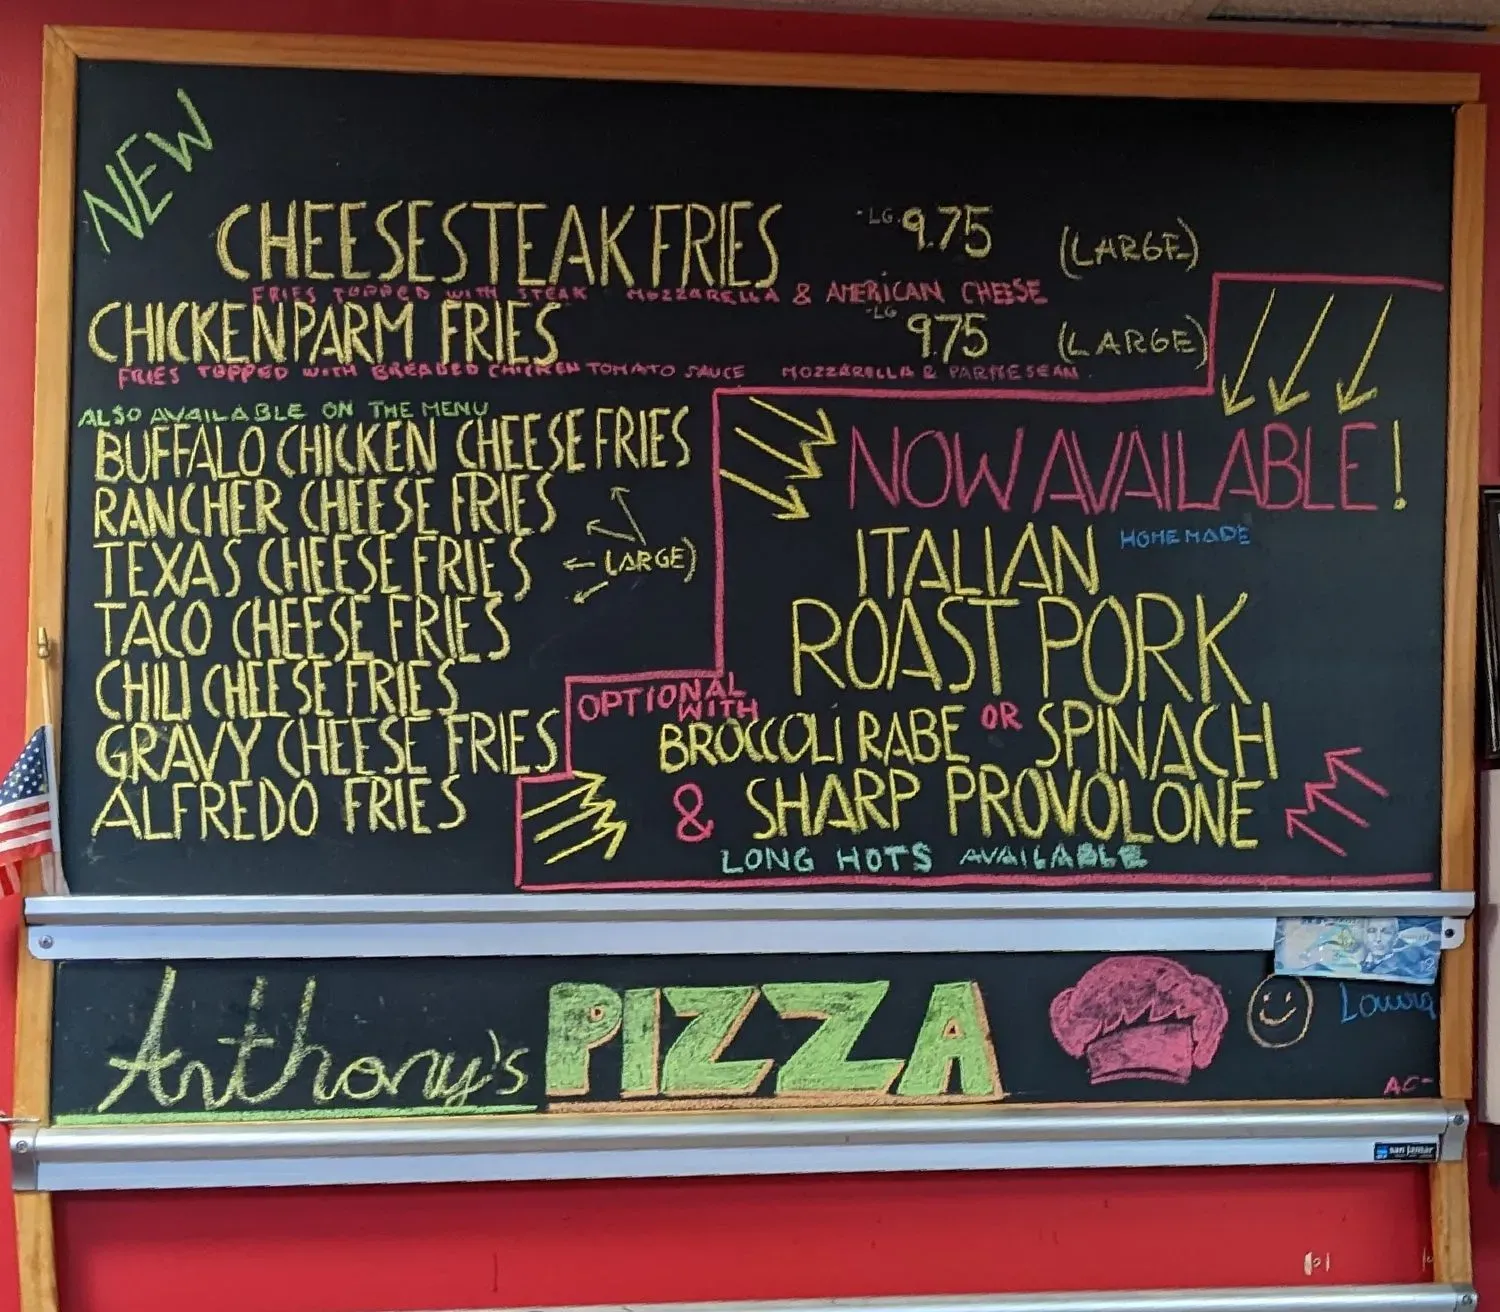 NEW
CHEESESTEAK FRIES LG 9.75 (LARGE)
FRIES TOPPED WITH STEAK MOZZARELLA & AMERICAN CHEESE
CHICKEN PARM FRIES LG 975 (LARGE)
FRIES TOPPED WITH BREADED CHICKEN TOMATO SAUCE MOZZARELLA & PARMESEAN
ALSO AVAILABLE ON THE MENU
BUFFALO CHICKEN CHEESE FRIES
RANCHER CHEESE FRIES
TEXAS CHEESE FRIES
(LARGE)
TACO CHEESE FRIES
CHILI CHEESE FRIES
GRAVY CHEESE FRIES
ALFREDO FRIES
NOW AVAILABLE!
ITALIAN HOMEMADE
ROAST PORK
OPTIONAL
WITH
BROCCOLI RABE OR SPINACH
& SHARP PROVOLONE
LONG HOTS AVAILABLE
Anthony's PIZZA
Laura
AC-
san jamar